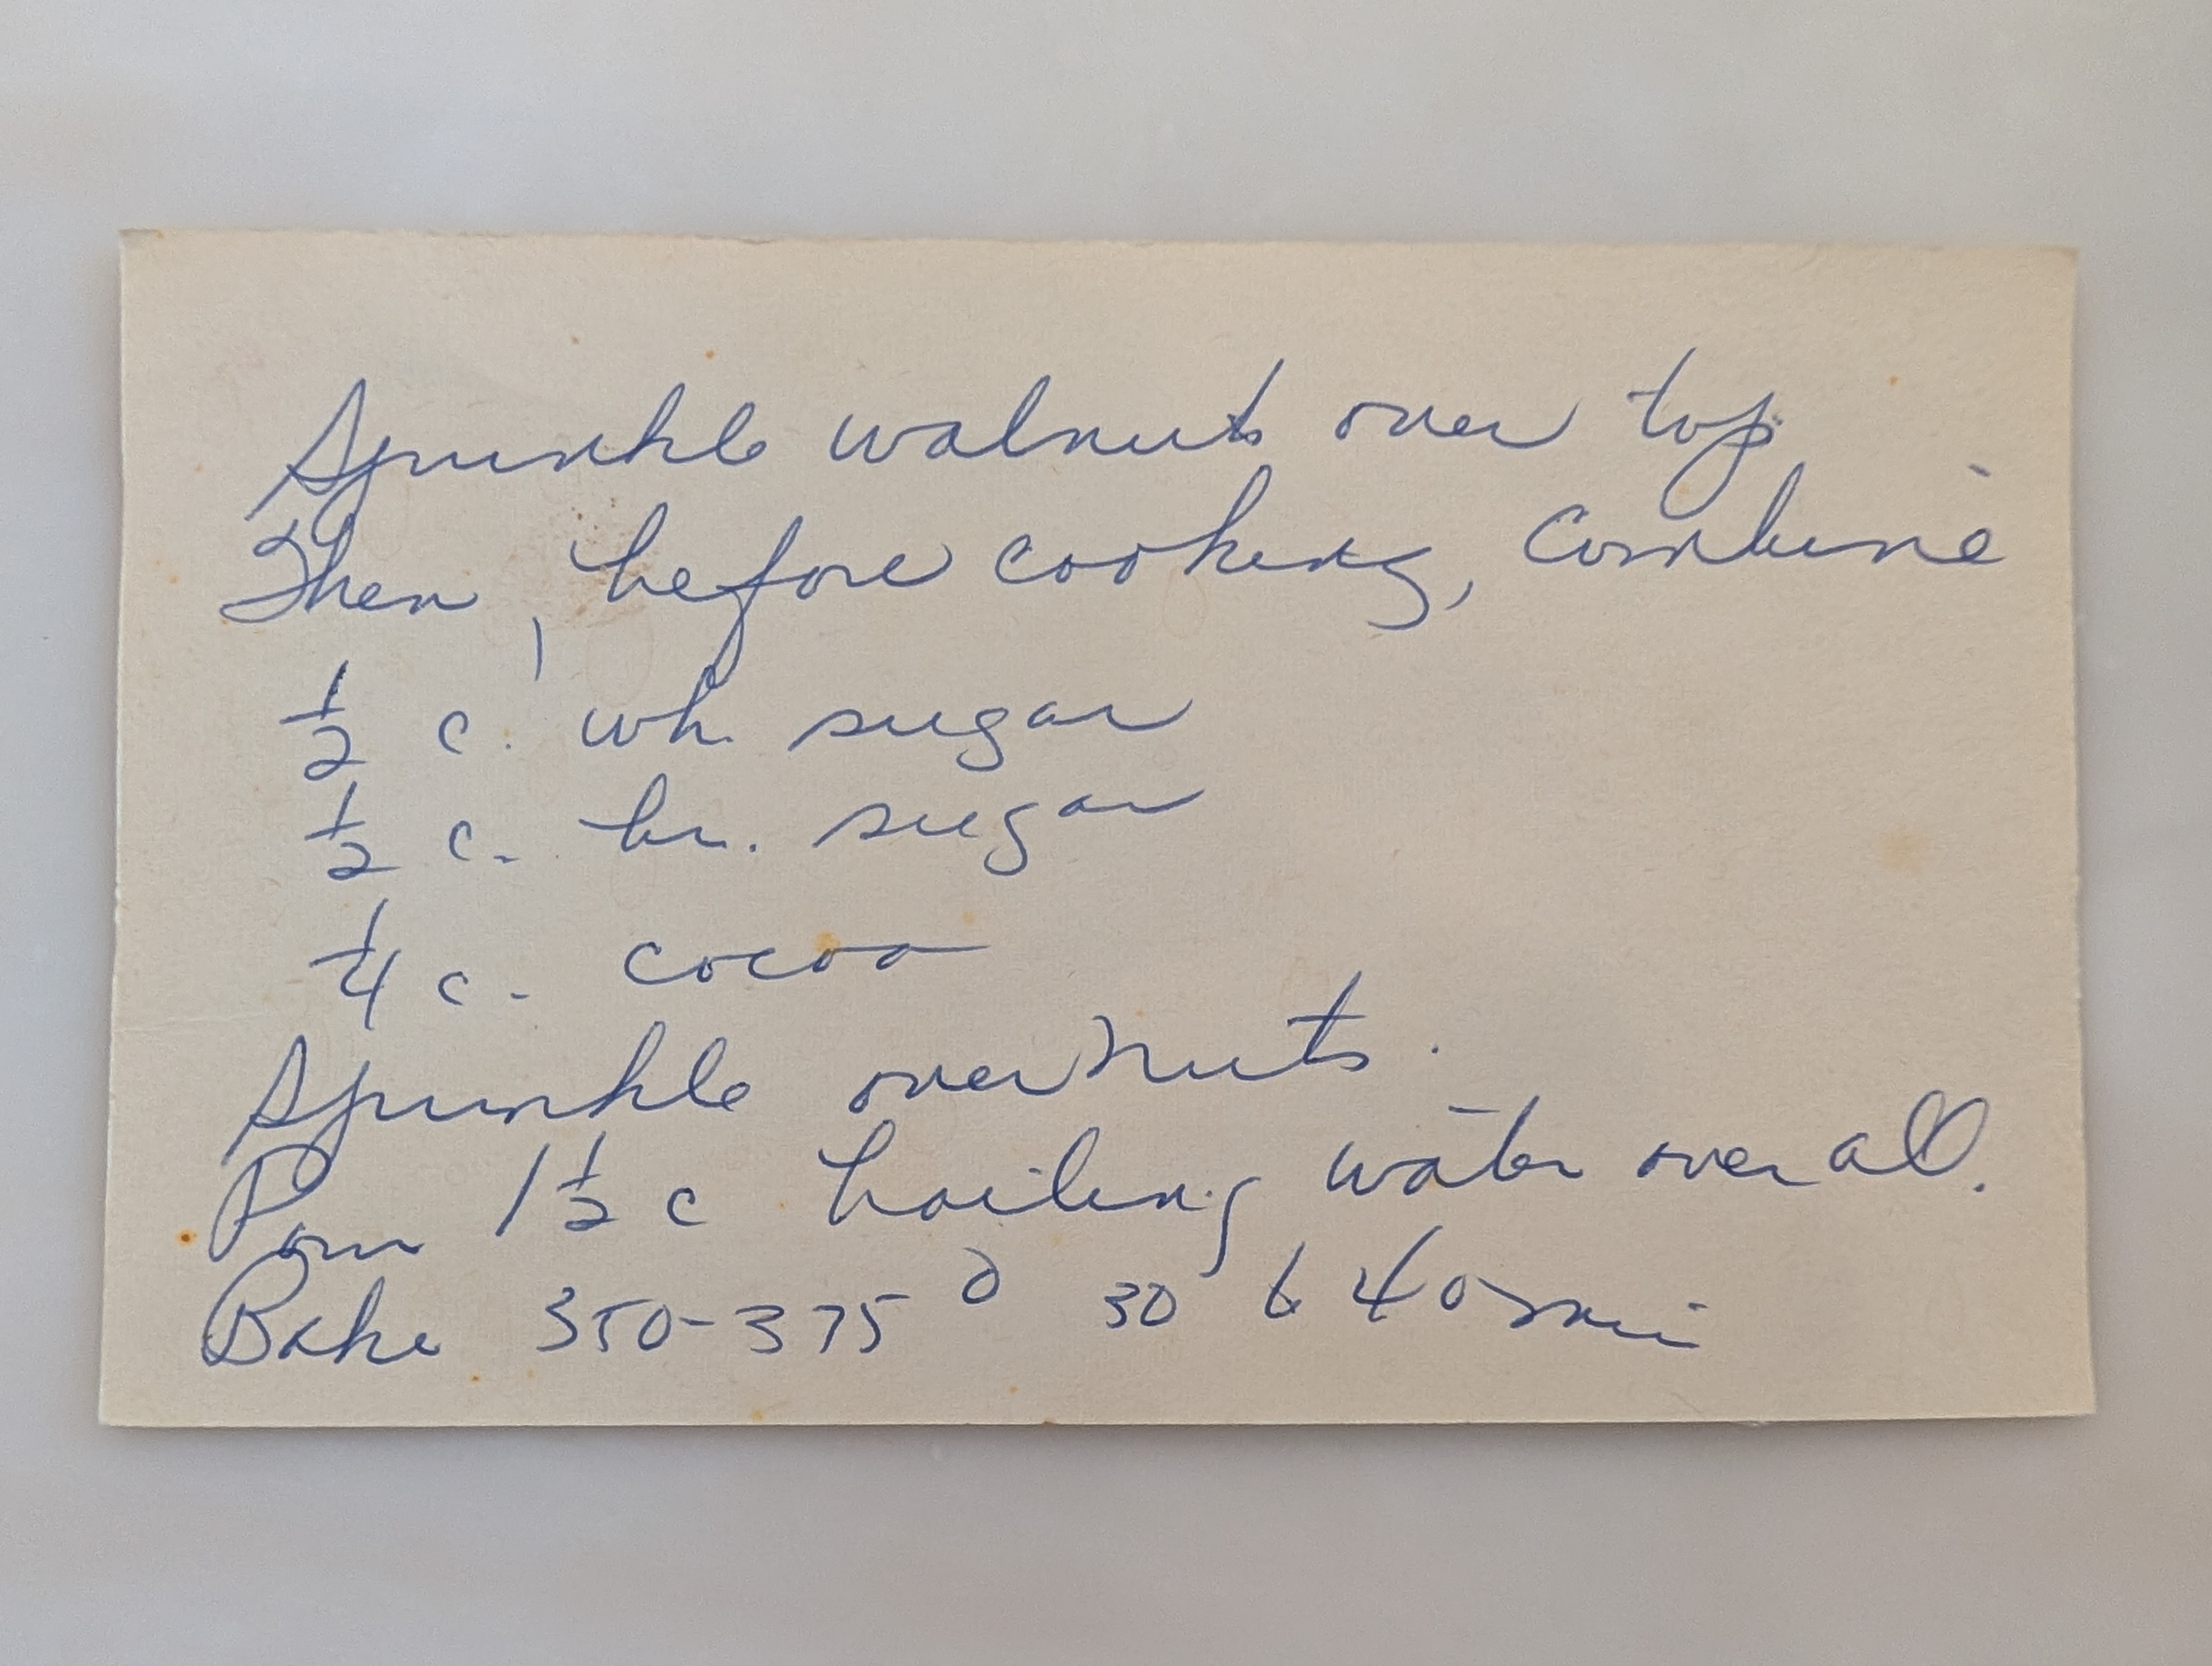 Sprinkle walnuts over top
Then, before cooking, combine
1/2 c. wh. sugar
1/2 c. br. sugar
1/4 c. cocoa
Sprinkle over nuts.
Pour 1 1/2 c boiling water over all.
Bake 350-375° 30 to 40 min